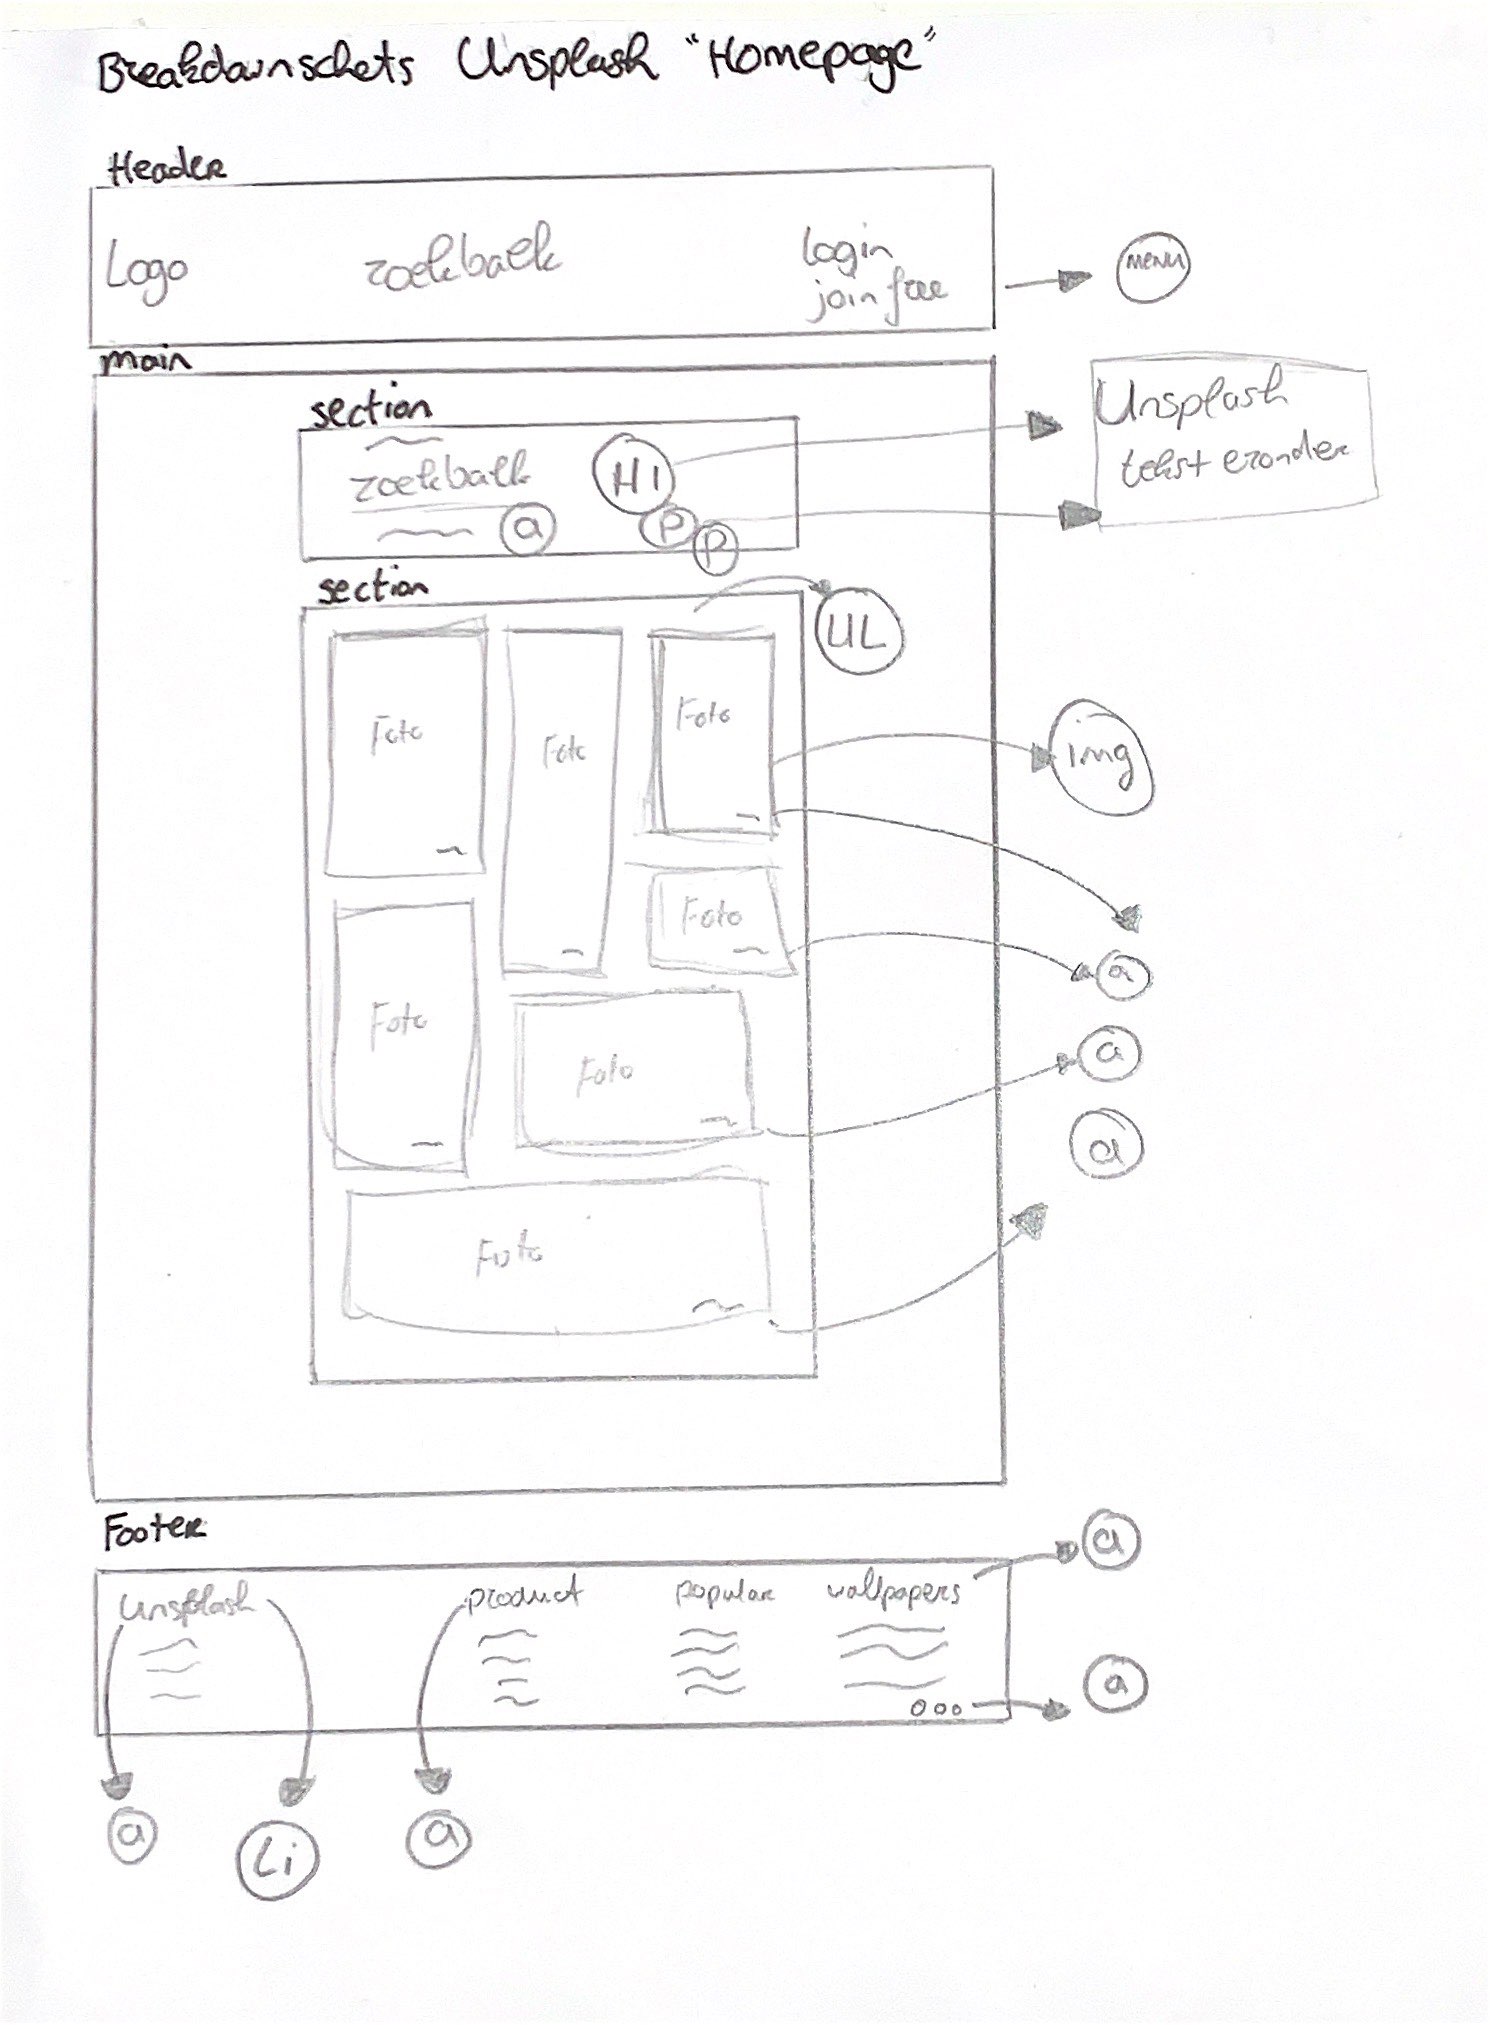 Breakdownschets Unsplash "Homepage"
Header
Logo zoekbalk login
join free
menu
main
section
zoekbalk H1
a P P
Unsplash
tekst eronder
section
UL
Foto Foto Foto
img
Foto
a
Foto Foto
a
a
Foto
Footer
a
Unsplash product popular wallpapers
a
a Li a